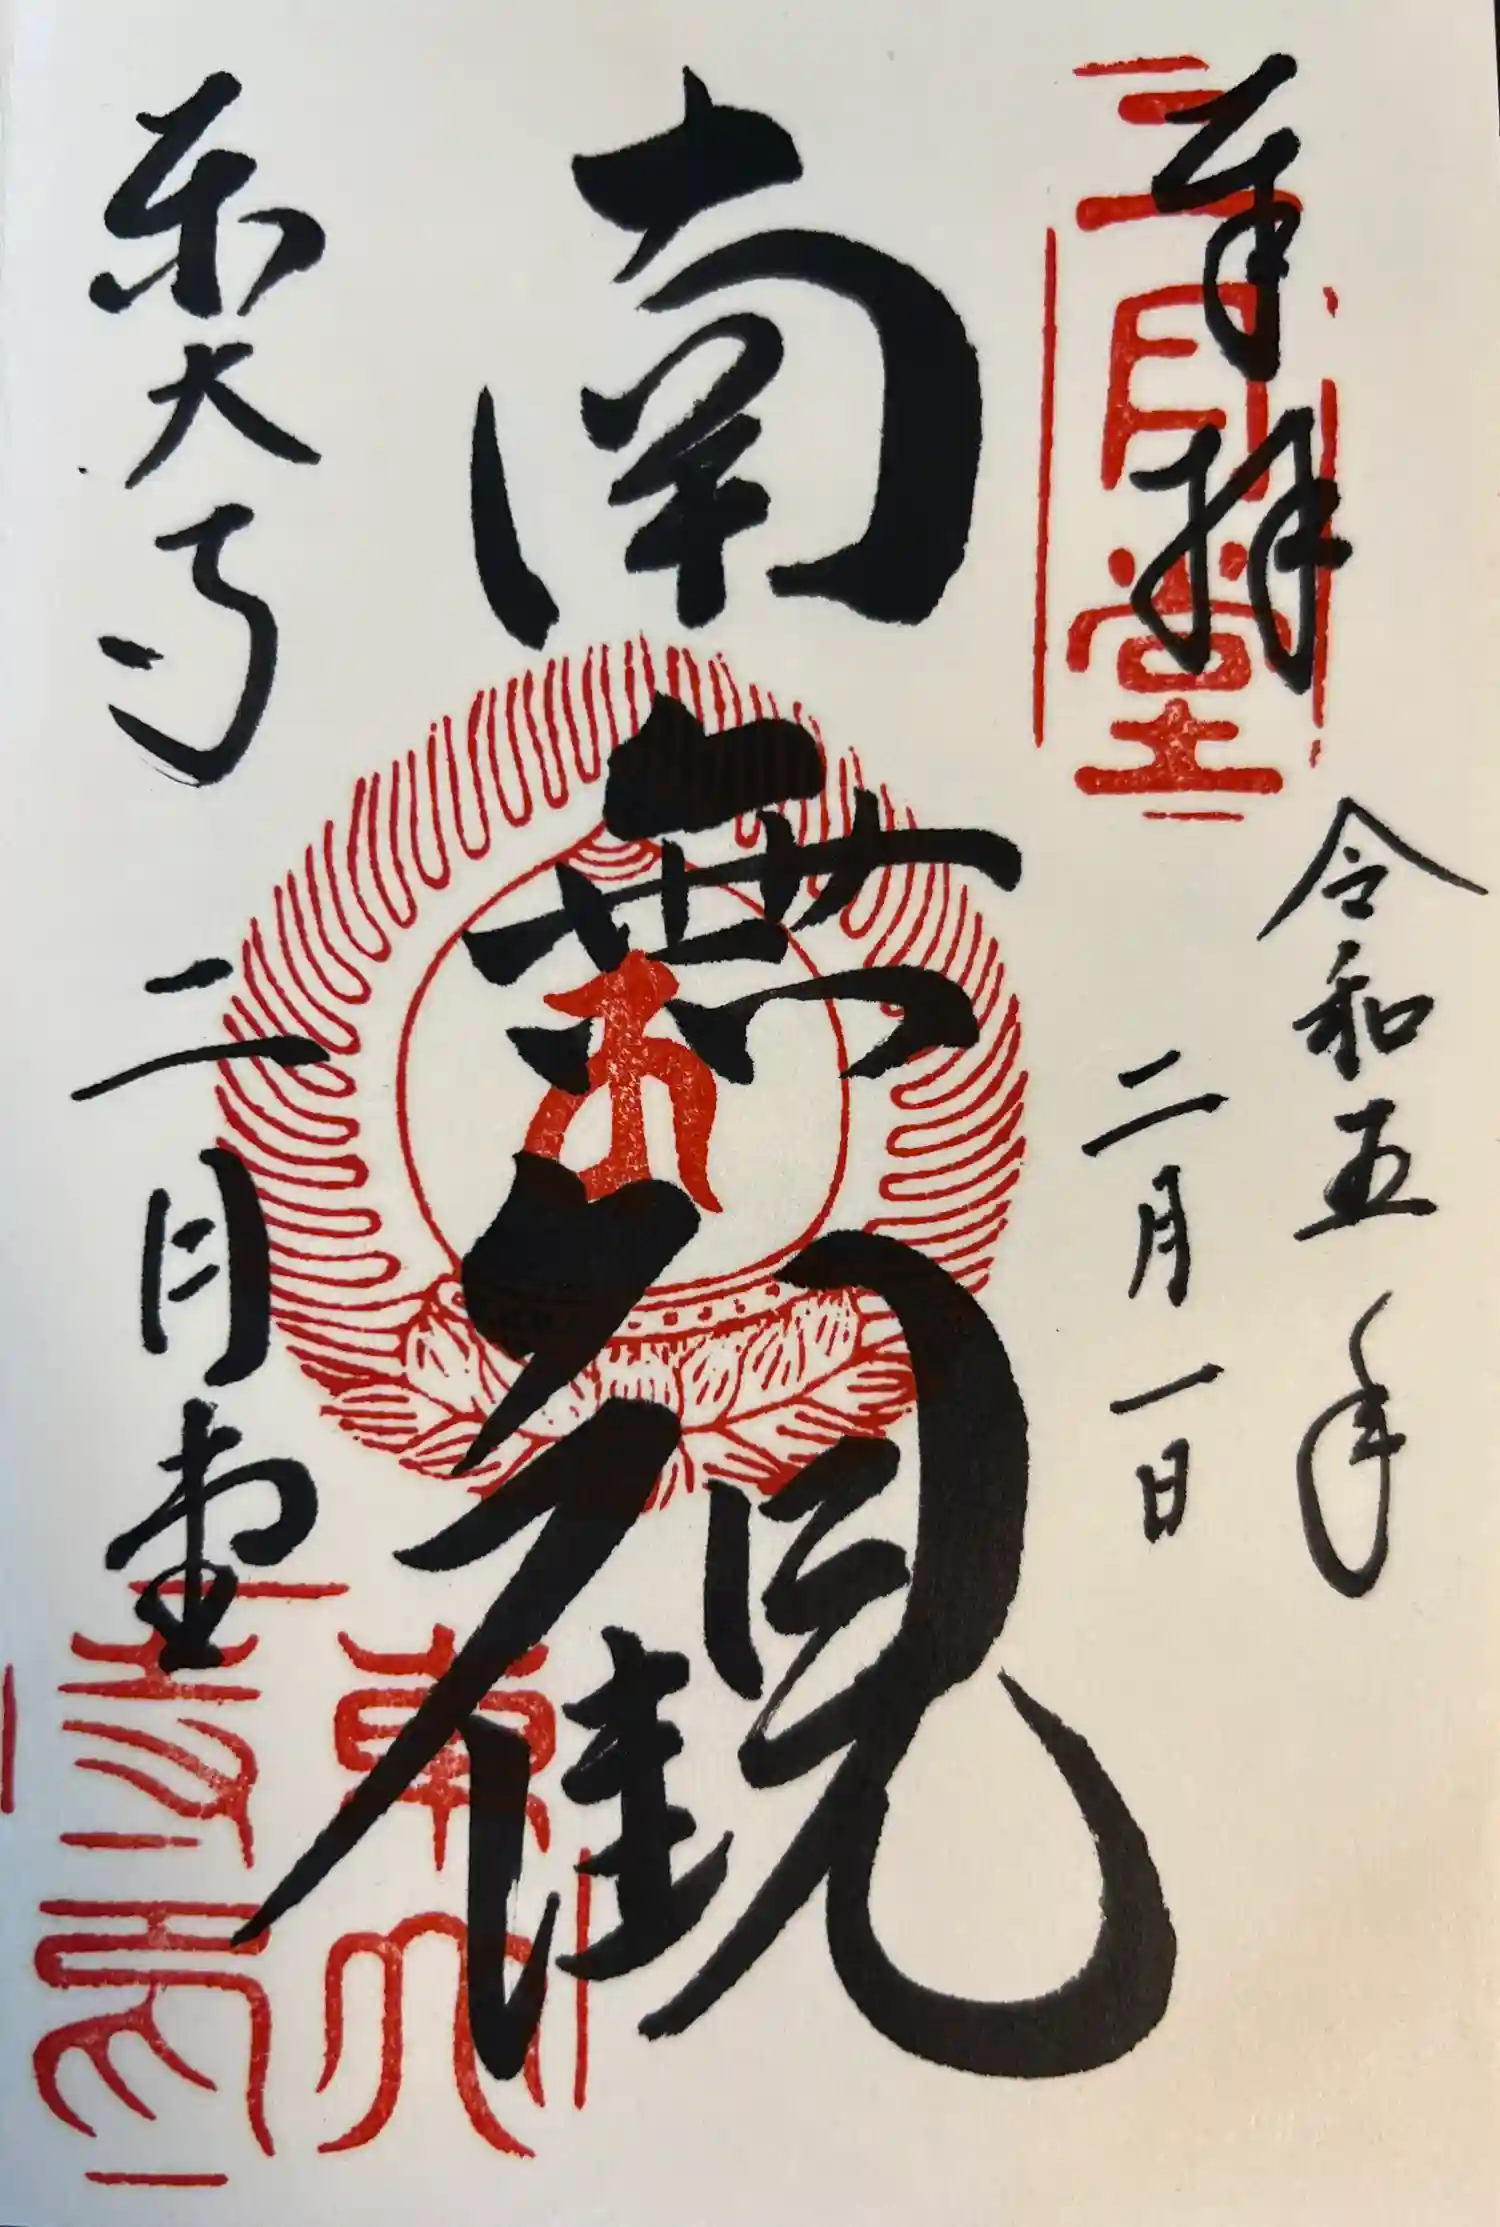 奉拝
二月堂
令和五年
二月一日
南無観
東大寺
二月堂
東大